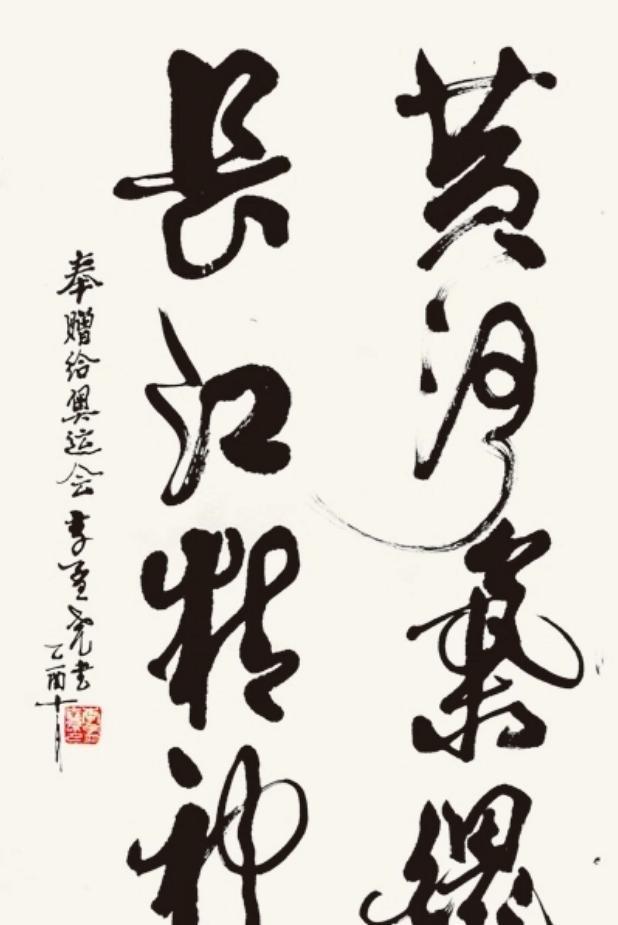 黄河氣
長江精神
奉贈给奥运会 李尧书
乙酉十月